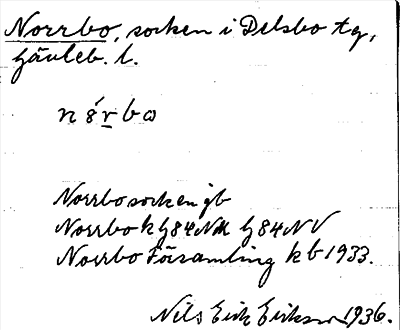 Norrbo, socken i Delsbo tg,
Gävleb. l.
nórbω
Norrbo socken jb
Norrbo k G84NM G84NV
Norrbo Församling kb 1933.
Nils Erik Eriksson 1936.